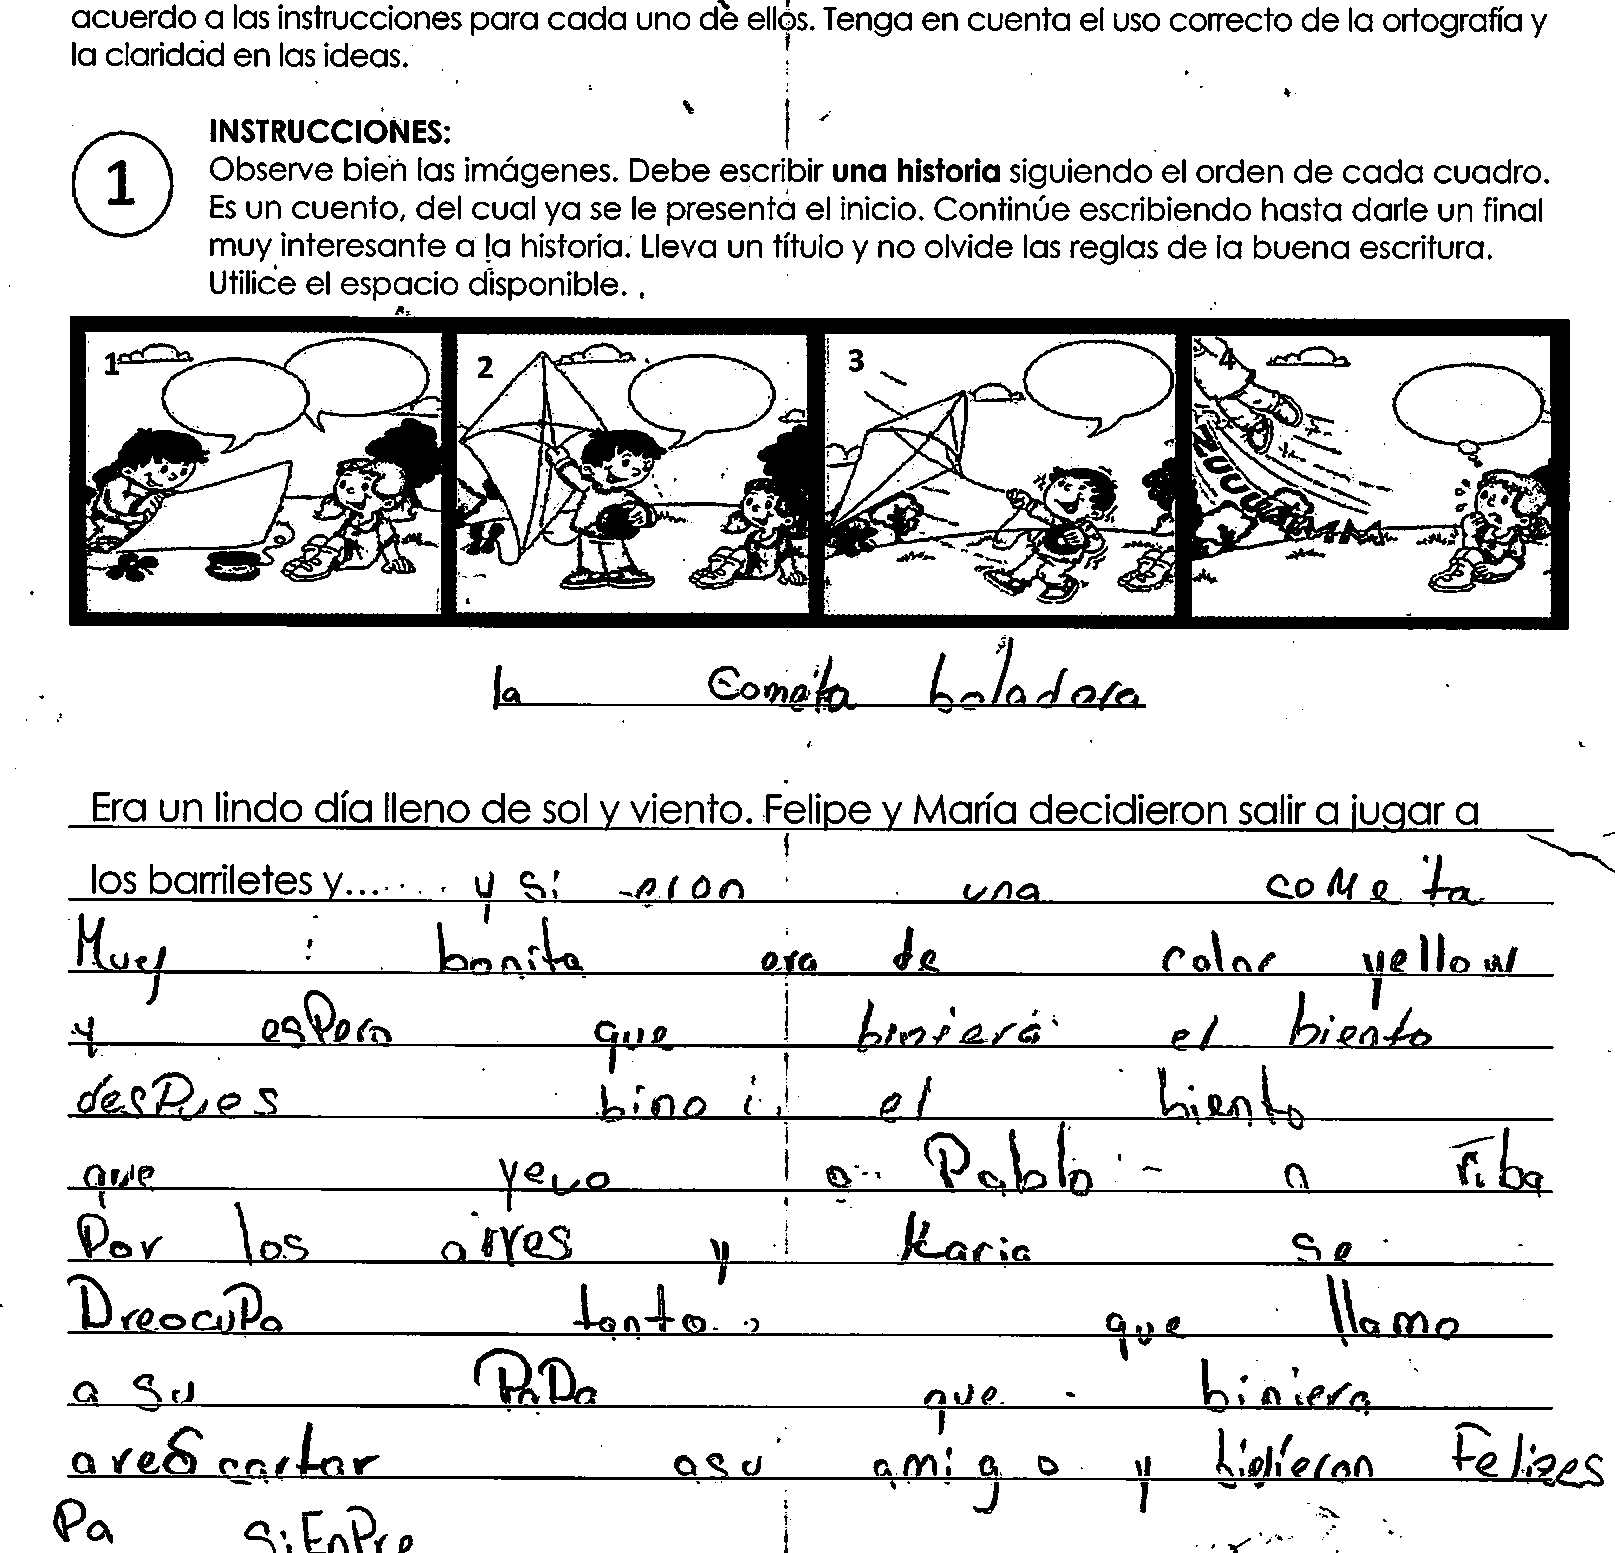 acuerdo a las instrucciones para cada uno de ellos. Tenga en cuenta el uso correcto de la ortografía y
la claridad en las ideas.
1
INSTRUCCIONES:
Observe bien las imágenes. Debe escribir una historia siguiendo el orden de cada cuadro.
Es un cuento, del cual ya se le presenta el inicio. Continúe escribiendo hasta darle un final
muy interesante a la historia. Lleva un título y no olvide las reglas de la buena escritura.
Utilice el espacio disponible.
1 2 3 4
la Cometa boladora
Era un lindo día lleno de sol y viento. Felipe y María decidieron salir a jugar a
los barriletes y...... y si eron una coMeta
Muy bonita era de color yellow
y esPero que biniera el biento
desPues bino el biento
que yevo a Pablo a riba
Por los aires y Karia se
PreocuPa tanto que llamo
a su PaPa que biniera
a rescartar asu amigo y bidieron Felizes
Pa SiEnPre